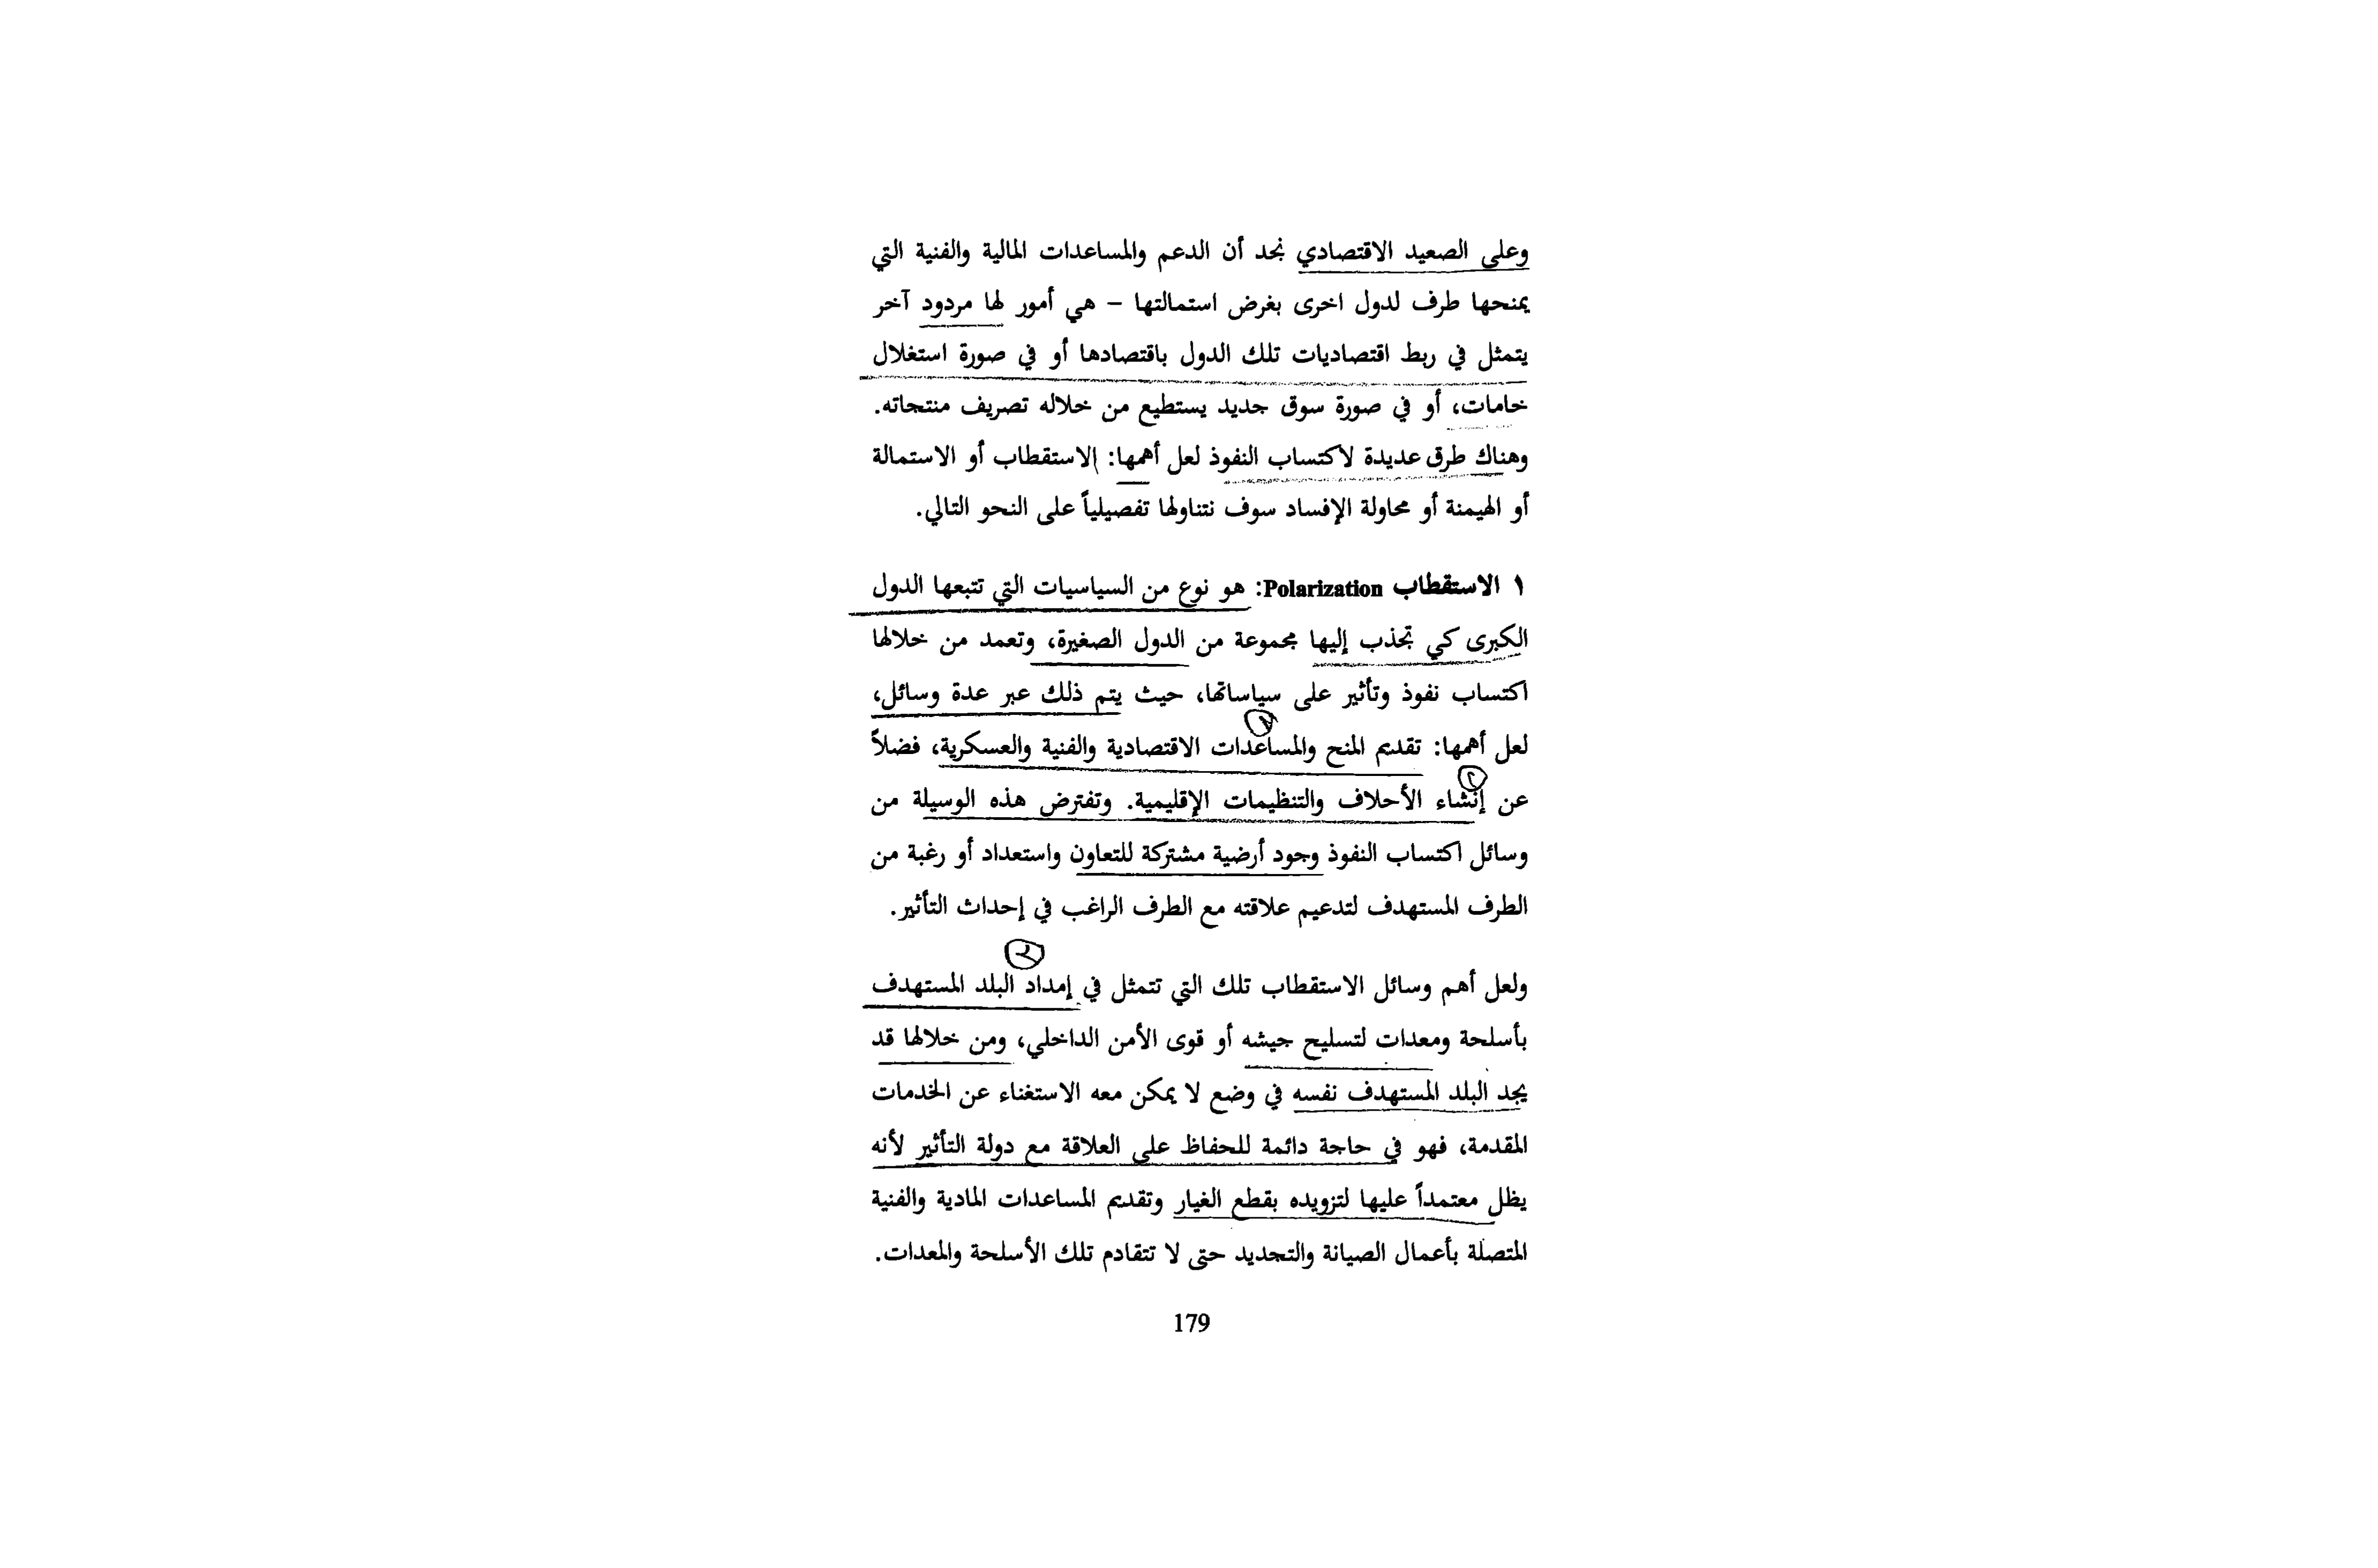 وعلى الصعيد الاقتصادي نجد أن الدعم والمساعدات المالية والفنية التي
يمنحها طرف لدول اخرى بغرض استمالتها – هي أمور لها مردود آخر
يتمثل في ربط اقتصاديات تلك الدول باقتصادها أو في صورة استغلال
خامات، أو في صورة سوق جديد يستطيع من خلاله تصريف منتجاته.
وهناك طرق عديدة لاكتساب النفوذ لعل أهمها: الاستقطاب أو الاستمالة
أو الهيمنة أو محاولة الإفساد سوف نتناولها تفصيلياً على النحو التالي.
١ الاستقطاب Polarization: هو نوع من السياسيات التي تتبعها الدول
الكبرى كي تجذب إليها مجموعة من الدول الصغيرة، وتعمد من خلالها
اكتساب نفوذ وتأثير على سياساتها، حيث يتم ذلك عبر عدة وسائل،
لعل أهمها: تقديم المنح والمساعدات الاقتصادية والفنية والعسكرية، فضلاً
عن إنشاء الأحلاف والتنظيمات الإقليمية. وتفترض هذه الوسيلة من
وسائل اكتساب النفوذ وجود أرضية مشتركة للتعاون واستعداد أو رغبة من
الطرف المستهدف لتدعيم علاقته مع الطرف الراغب في إحداث التأثير.
ولعل أهم وسائل الاستقطاب تلك التي تتمثل في إمداد البلد المستهدف
بأسلحة ومعدات لتسليح جيشه أو قوى الأمن الداخلي، ومن خلالها قد
يجد البلد المستهدف نفسه في وضع لا يمكن معه الاستغناء عن الخدمات
المقدمة، فهو في حاجة دائمة للحفاظ على العلاقة مع دولة التأثير لأنه
يظل معتمداً عليها لتزويده بقطع الغيار وتقديم المساعدات المادية والفنية
المتصلة بأعمال الصيانة والتجديد حتى لا تتقادم تلك الأسلحة والمعدات.
179